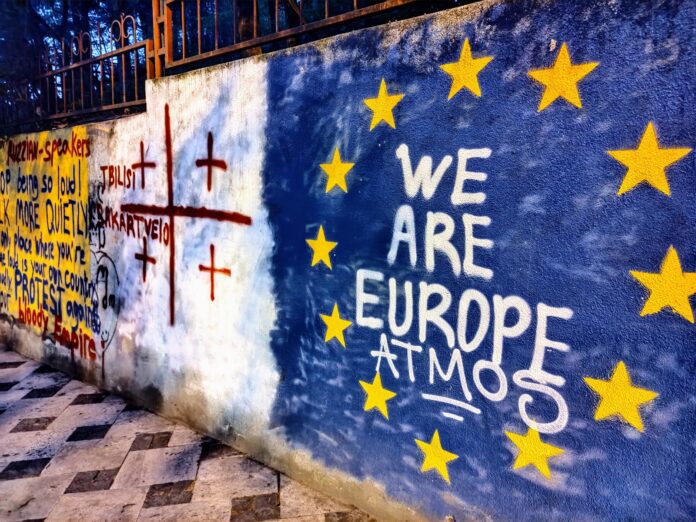 RUZZIAN-speakers
OP being so loud!
LK MORE QUIETLY
only place where you're
loud is your own country
PROTEST
bloody Empire
TBILISI
SAKARTVElO
WE
ARE
EUROPE
ATMOS